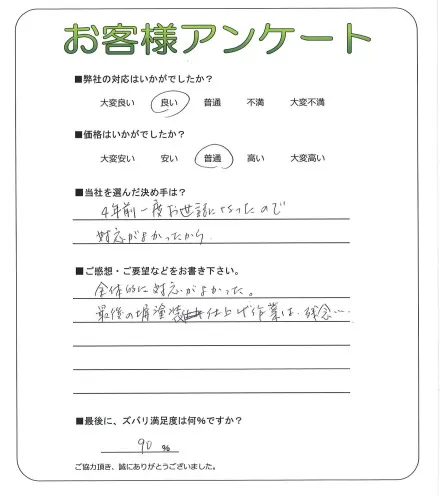 お客様アンケート
■弊社の対応はいかがでしたか？
大変良い 良い 普通 不満 大変不満
■価格はいかがでしたか？
大変安い 安い 普通 高い 大変高い
■当社を選んだ決め手は？
4年前一度お世話になったので
対応がよかったから
■ご感想・ご要望などをお書き下さい。
全体的に対応がよかった。
最後の塀塗装仕上げ作業は残念…
■最後に、ズバリ満足度は何%ですか？
90 %
ご協力頂き、誠にありがとうございました。